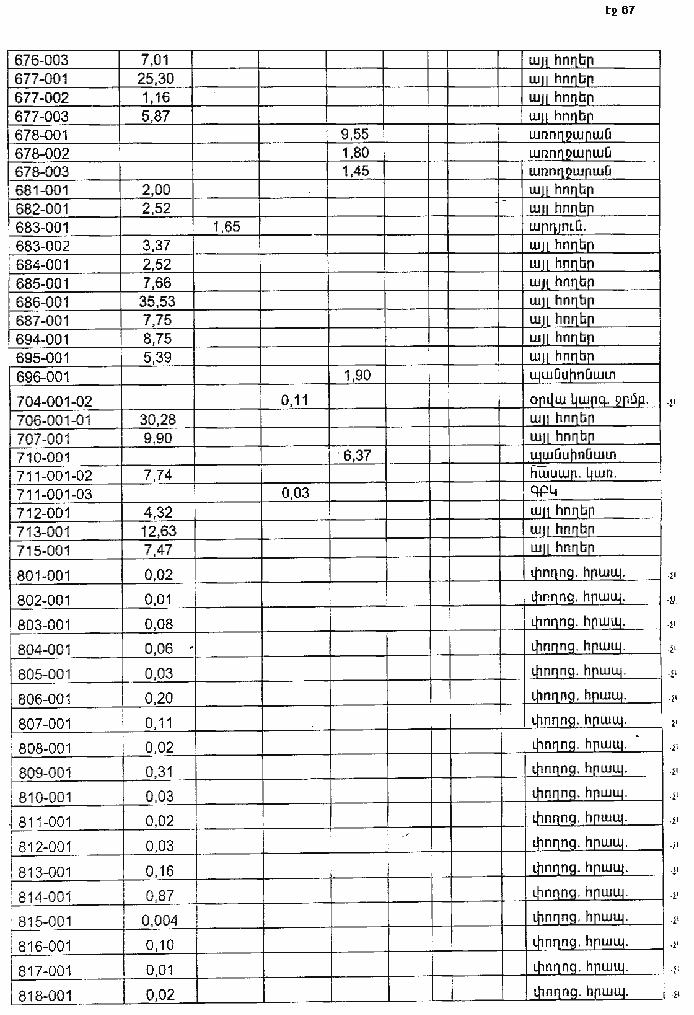 էջ 67
676-003 7,01 այլ հողեր
677-001 25,30 այլ հողեր
677-002 1,16 այլ հողեր
677-003 5,87 այլ հողեր
678-001 9,55 առողջարան
678-002 1,80 առողջարան
678-003 1,45 առողջարան
681-001 2,00 այլ հողեր
682-001 2,52 այլ հողեր
683-001 1,65 արդյուն.
683-002 3,37 այլ հողեր
684-001 2,52 այլ հողեր
685-001 7,66 այլ հողեր
686-001 35,53 այլ հողեր
687-001 7,75 այլ հողեր
694-001 8,75 այլ հողեր
695-001 5,39 այլ հողեր
696-001 1,90 պանսիոնատ
704-001-02 0,11 օրվա կարգ. ջրմբ.
706-001-01 30,28 այլ հողեր
707-001 9,90 այլ հողեր
710-001 6,37 պանսիոնատ
711-001-02 7,74 հասար. կառ.
711-001-03 0,03 ԳԲԿ
712-001 4,32 այլ հողեր
713-001 12,63 այլ հողեր
715-001 7,47 այլ հողեր
801-001 0,02 փողոց. հրապ.
802-001 0,01 փողոց. հրապ.
803-001 0,08 փողոց. հրապ.
804-001 0,06 փողոց. հրապ.
805-001 0,03 փողոց. հրապ.
806-001 0,20 փողոց. հրապ.
807-001 0,11 փողոց. հրապ.
808-001 0,02 փողոց. հրապ.
809-001 0,31 փողոց. հրապ.
810-001 0,03 փողոց. հրապ.
811-001 0,02 փողոց. հրապ.
812-001 0,03 փողոց. հրապ.
813-001 0,16 փողոց. հրապ.
814-001 0,87 փողոց. հրապ.
815-001 0,004 փողոց. հրապ.
816-001 0,10 փողոց. հրապ.
817-001 0,01 փողոց. հրապ.
818-001 0,02 փողոց. հրապ.